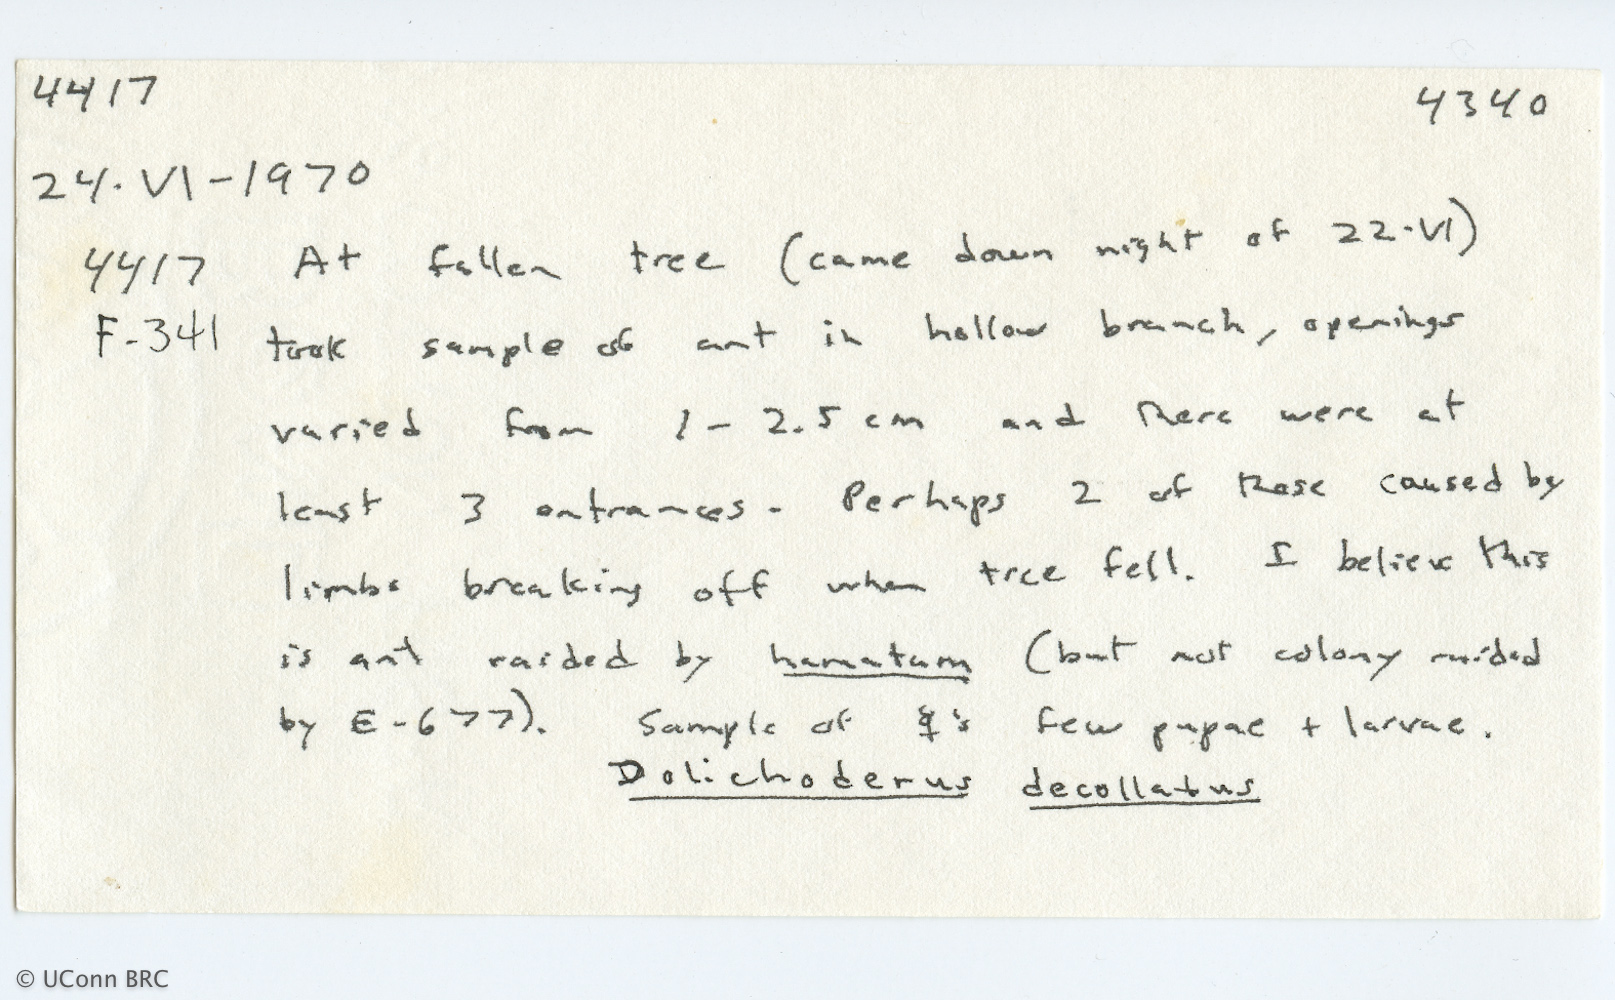 4417
4340
24-VI-1970
4417 At fallen tree (came down night of 22-VI)
F-341 took sample of ant in hollow branch, openings
varied from 1-2.5 cm and there were at
least 3 entrances. Perhaps 2 of these caused by
limbs breaking off when tree fell. I believe this
is ant raided by hamatum (but not colony raided
by E-677). Sample of ☿'s few pupae + larvae.
Dolichoderus decollatus
© UConn BRC